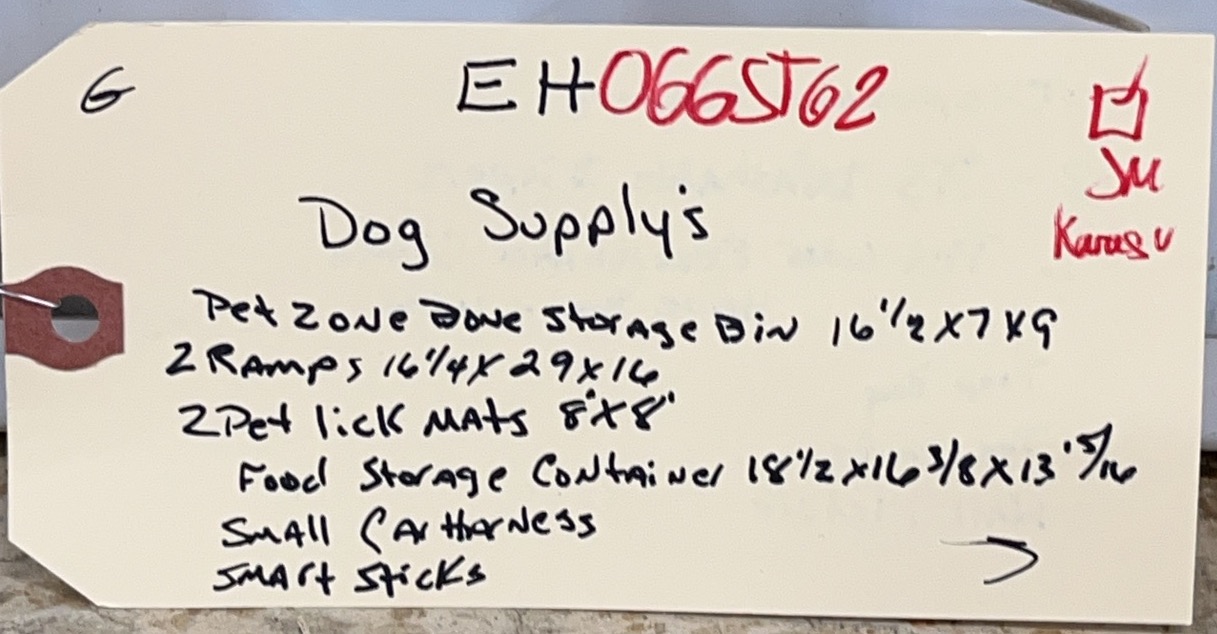 G
EH066ST62
JM
Dog Supply's
Pet Zone Bone Storage Bin 16 1/2 x 7 x 9
2 Ramps 16 1/4 x 29 x 16
2 Pet lick Mats 8" x 8"
Food Storage Container 18 1/2 x 16 3/8 x 13 15/16
Small Car Harness
Smart Sticks